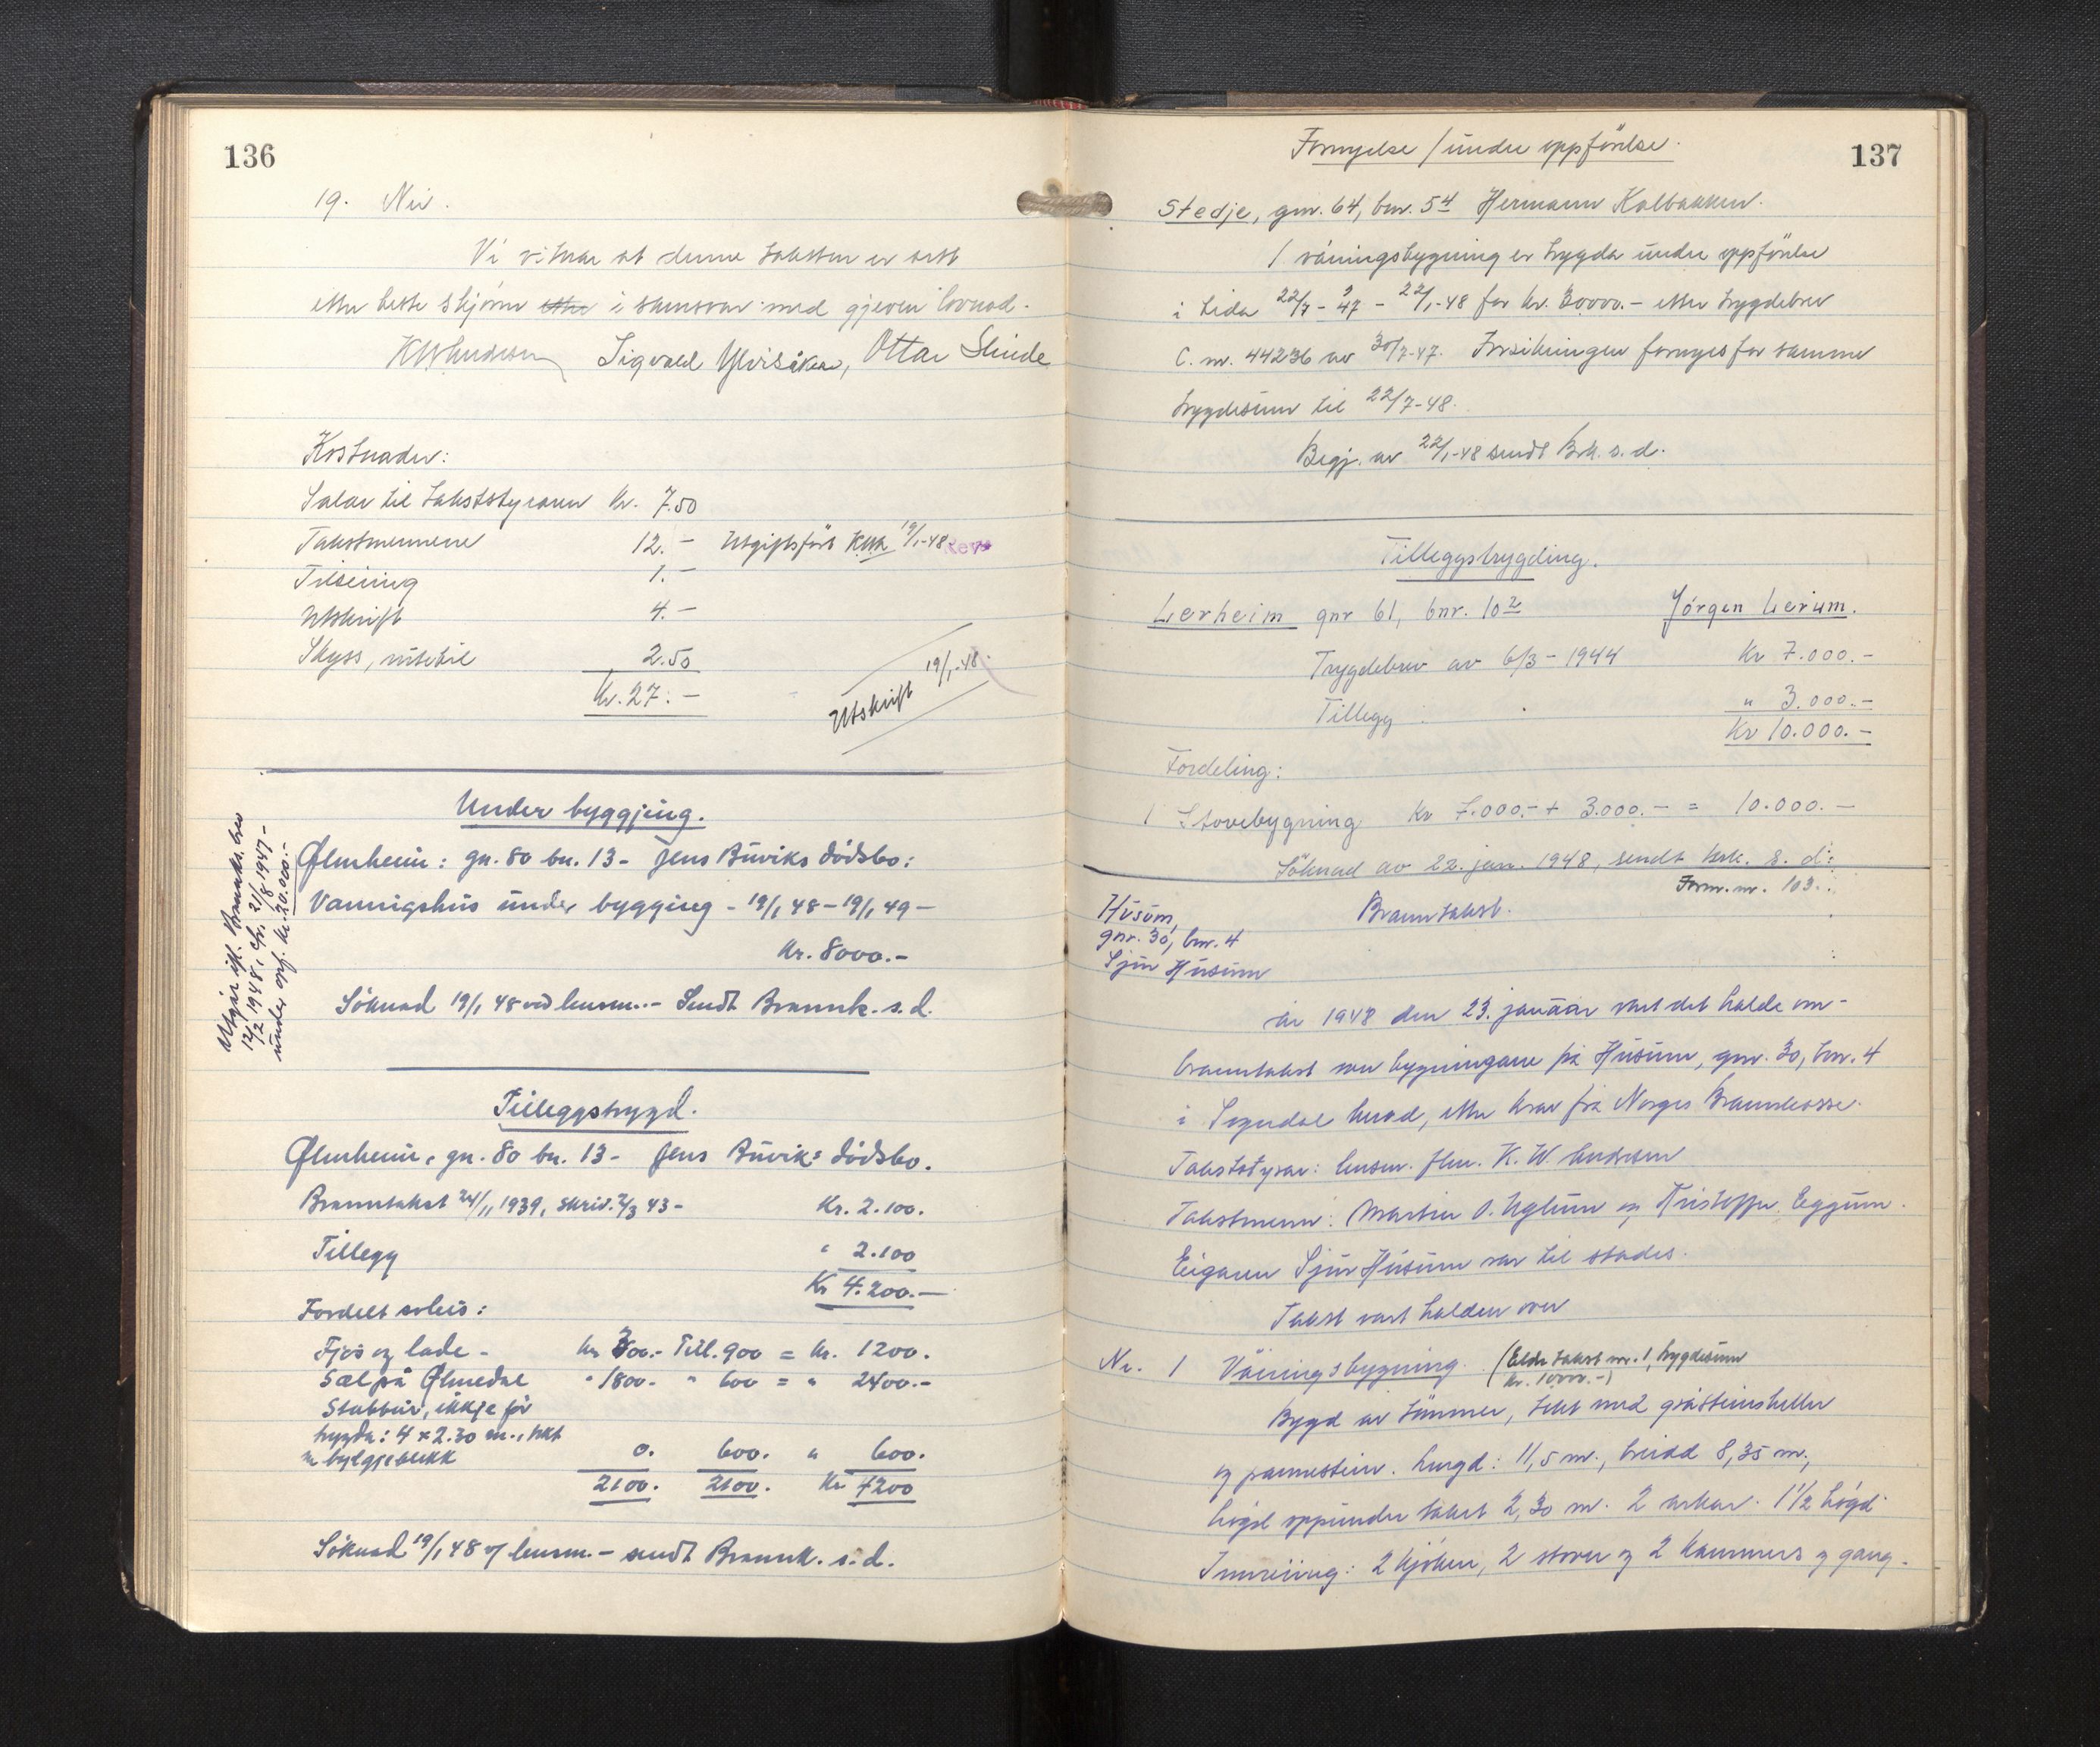 136
19. Nir.
Vi vitnar at denne taksten er sett
etter beste skjønn etter i samsvar med gjeven lovnad.
KWAndresen Sigvald Ylvisåker, Ottar Slinde
Kostnader:
Salar til takststyraren kr. 7.50
Takstmennene 12.- Utgiftsført KWA 19/1-48 Rev
Tilseiing 1.-
Utskrift 4.-
Skyss, 2.50
Kr. 27.-
Utskrift 19/1-48.
Under byggjing.
Ølmheim: gn. 80 bn. 13- Jens Buviks dødsbo:
Vaningshus under bygging - 19/1 48 - 19/1 49 -
Kr. 8000.-
Søknad 19/1 48 ved lensm.- Sendt Brannk. s.d.
Utgår ifl. Brannks. brev
12/2 1948, cfr. 21/8 1947 -
under oppf. kr. 20.000.-
Tilleggstrygd.
Ølmheim, gn. 80 bn. 13- Jens Buviks dødsbo.
Branntakst 24/11 1939, skriv. 2/3 43- Kr. 2.100.
Tillegg " 2.100
Kr 4.200.-
Fordelt soleis:
Fjos og lade - kr 300.- Till. 900 = kr. 1200.
Sel på Ølmedal " 1800. " 600 = " 2400.-
Stabbur, ikkje før
trygda: 4 x 2.30 m., tekt
m bylgjeblekk 0. 600. " 600.
2100. 2100. Kr 4200
Søknad 19/1 48 v/ lensm. - sendt Brannk. s.d.
137
Fornyelse / under oppførelse.
Stedje, gnr. 64, bnr. 54 Hermann Kalbakken.
1 våningsbygning er trygda under oppførelse
i tida 22/7-47 - 22/1-48 for kr. 30000.- etter trygdebrev
C. nr. 44236 av 30/7-47. Forsikringen fornyes for samme
trygdesum til 22/7-48.
Begj. av 22/1-48 sendt Brk. s.d.
Tilleggstrygding.
Lerheim gnr 61, bnr. 10² Jørgen Lerum.
Trygdebrev av 6/3-1944 Kr 7.000.-
Tillegg " 3.000.-
Kr 10.000.-
Fordeling:
1 Stovebygning Kr 7.000.- + 3.000.- = 10.000.-
Søknad av 22. jan. 1948, sendt brk. s. d.
Form. nr. 103.
Husum, Branntakst.
gnr. 30, bnr. 4
Sjur Husum
År 1948 den 23. januar vart det halde om-
branntakst over bygningane på Husum, gnr. 30, bnr. 4
i Sogndal herad, etter krav frå Norges Brannkasse.
Takststyrar: lensm. flm. K. W. Andresen
Takstmenn: Martin O. Uglum og Kristoffer Eggum.
Eigaren Sjur Husum var til stades.
Takst vart halden over
Nr. 1 Våningsbygning. (Eldre takst nr. 1, trygdesum
kr. 10000.-)
Bygd av tømmer, tekt med gråsteinsheller
og pannestein. Lengd: 11,5 m., breidd 8,35 m.,
høgd oppunder taket 2,30 m. 2 arkar. 1 1/2 høgd
Innreiing: 2 kjøken, 2 stover og 2 kammers og gang.